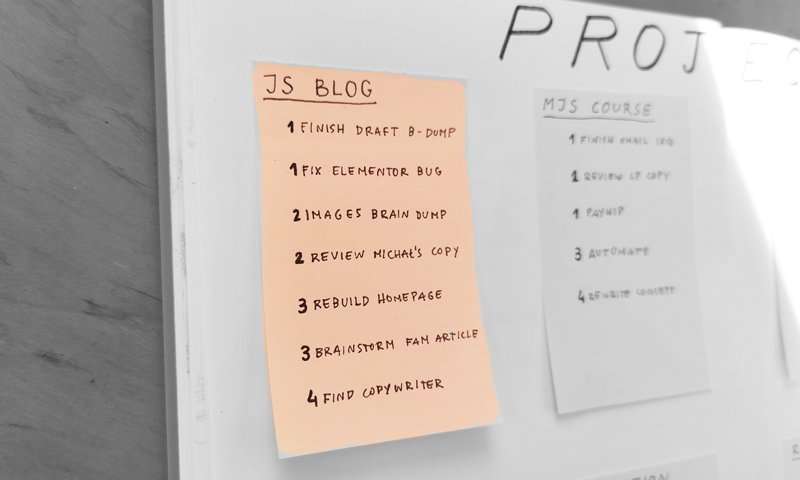 PROJEC
JS BLOG
1 FINISH DRAFT B-DUMP
1 FIX ELEMENTOR BUG
2 IMAGES BRAIN DUMP
2 REVIEW MICHAŁ'S COPY
3 REBUILD HOMEPAGE
3 BRAINSTORM FAM ARTICLE
4 FIND COPYWRITER
MJS COURSE
1 FINISH EMAIL
1 REVIEW LP COPY
1 PAYHIP
3 AUTOMATE
4 REWRITE